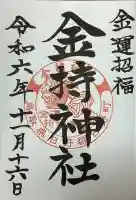 金運招福
金持神社
令和六年十一月十六日